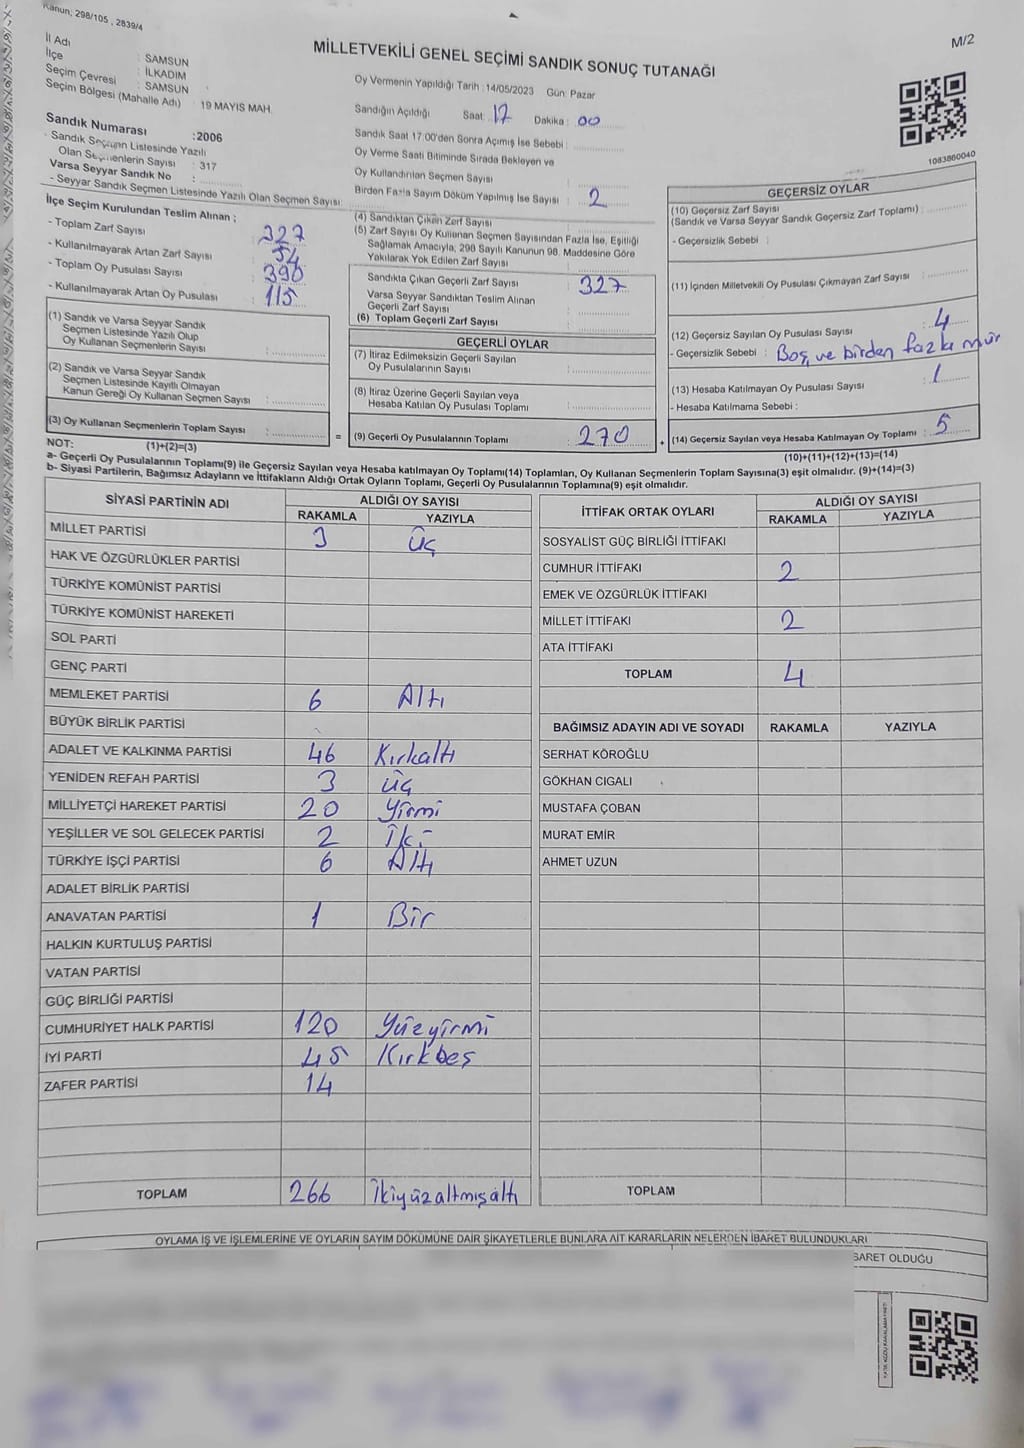 Kanun; 298/105 , 2839/4
M/2
MİLLETVEKİLİ GENEL SEÇİMİ SANDIK SONUÇ TUTANAĞI
İl Adı : SAMSUN
İlçe : İLKADIM
Seçim Çevresi : SAMSUN
Seçim Bölgesi (Mahalle Adı) : 19 MAYIS MAH.
Sandık Numarası :2006
- Sandık Seçmen Listesinde Yazılı
Olan Seçmenlerin Sayısı : 317
Varsa Seyyar Sandık No :
- Seyyar Sandık Seçmen Listesinde Yazılı Olan Seçmen Sayısı:
Oy Vermenin Yapıldığı Tarih : 14/05/2023 Gün: Pazar
Sandığın Açıldığı Saat: 17 Dakika : 00
Sandık Saat 17:00'den Sonra Açımış İse Sebebi :
Oy Verme Saati Bitiminde Sırada Bekleyen ve
Oy Kullandırılan Seçmen Sayısı :
Birden Fazla Sayım Döküm Yapılmış İse Sayısı : 2
1083860040
İlçe Seçim Kurulundan Teslim Alınan ;
- Toplam Zarf Sayısı : 327
- Kullanılmayarak Artan Zarf Sayısı : 54
- Toplam Oy Pusulası Sayısı : 390
- Kullanılmayarak Artan Oy Pusulası : 115
(1) Sandık ve Varsa Seyyar Sandık
Seçmen Listesinde Yazılı Olup
Oy Kullanan Seçmenlerin Sayısı :
(2) Sandık ve Varsa Seyyar Sandık
Seçmen Listesinde Kayıtlı Olmayan
Kanun Gereği Oy Kullanan Seçmen Sayısı :
(3) Oy Kullanan Seçmenlerin Toplam Sayısı :
(1)+(2)=(3)
(4) Sandıktan Çıkan Zarf Sayısı :
(5) Zarf Sayısı Oy Kullanan Seçmen Sayısından Fazla İse, Eşitliği
Sağlamak Amacıyla, 298 Sayılı Kanunun 98. Maddesine Göre
Yakılarak Yok Edilen Zarf Sayısı :
Sandıkta Çıkan Geçerli Zarf Sayısı : 327
Varsa Seyyar Sandıktan Teslim Alınan
Geçerli Zarf Sayısı :
(6) Toplam Geçerli Zarf Sayısı :
GEÇERLİ OYLAR
(7) İtiraz Edilmeksizin Geçerli Sayılan
Oy Pusulalarının Sayısı :
(8) İtiraz Üzerine Geçerli Sayılan veya
Hesaba Katılan Oy Pusulası Toplamı :
= (9) Geçerli Oy Pusulalarının Toplamı : 270 +
GEÇERSİZ OYLAR
(10) Geçersiz Zarf Sayısı
(Sandık ve Varsa Seyyar Sandık Geçersiz Zarf Toplamı) :
- Geçersizlik Sebebi :
(11) İçinden Milletvekili Oy Pusulası Çıkmayan Zarf Sayısı :
(12) Geçersiz Sayılan Oy Pusulası Sayısı : 4
- Geçersizlik Sebebi : Boş ve birden fazla mür
(13) Hesaba Katılmayan Oy Pusulası Sayısı : 1
- Hesaba Katılmama Sebebi :
(14) Geçersiz Sayılan veya Hesaba Katılmayan Oy Toplamı : 5
(10)+(11)+(12)+(13)=(14)
NOT:
a- Geçerli Oy Pusulalarının Toplamı(9) ile Geçersiz Sayılan veya Hesaba katılmayan Oy Toplamı(14) Toplamları, Oy Kullanan Seçmenlerin Toplam Sayısına(3) eşit olmalıdır. (9)+(14)=(3)
b- Siyasi Partilerin, Bağımsız Adayların ve İttifakların Aldığı Ortak Oyların Toplamı, Geçerli Oy Pusulalarının Toplamına(9) eşit olmalıdır.
SİYASİ PARTİNİN ADI ALDIĞI OY SAYISI
RAKAMLA YAZIYLA
MİLLET PARTİSİ 3 Üç
HAK VE ÖZGÜRLÜKLER PARTİSİ
TÜRKİYE KOMÜNİST PARTİSİ
TÜRKİYE KOMÜNİST HAREKETİ
SOL PARTİ
GENÇ PARTİ
MEMLEKET PARTİSİ 6 Altı
BÜYÜK BİRLİK PARTİSİ
ADALET VE KALKINMA PARTİSİ 46 Kırkaltı
YENİDEN REFAH PARTİSİ 3 Üç
MİLLİYETÇİ HAREKET PARTİSİ 20 Yirmi
YEŞİLLER VE SOL GELECEK PARTİSİ 2 İki
TÜRKİYE İŞÇİ PARTİSİ 6 Altı
ADALET BİRLİK PARTİSİ
ANAVATAN PARTİSİ 1 Bir
HALKIN KURTULUŞ PARTİSİ
VATAN PARTİSİ
GÜÇ BİRLİĞİ PARTİSİ
CUMHURİYET HALK PARTİSİ 120 Yüzyirmi
İYİ PARTİ 45 Kırkbeş
ZAFER PARTİSİ 14
TOPLAM 266 İkiyüzaltmışaltı
İTTİFAK ORTAK OYLARI ALDIĞI OY SAYISI
RAKAMLA YAZIYLA
SOSYALİST GÜÇ BİRLİĞİ İTTİFAKI
CUMHUR İTTİFAKI 2
EMEK VE ÖZGÜRLÜK İTTİFAKI
MİLLET İTTİFAKI 2
ATA İTTİFAKI
TOPLAM 4
BAĞIMSIZ ADAYIN ADI VE SOYADI RAKAMLA YAZIYLA
SERHAT KÖROĞLU
GÖKHAN CIGALI
MUSTAFA ÇOBAN
MURAT EMİR
AHMET UZUN
TOPLAM
OYLAMA İŞ VE İŞLEMLERİNE VE OYLARIN SAYIM DÖKÜMÜNE DAİR ŞİKAYETLERLE BUNLARA AİT KARARLARIN NELERDEN İBARET BULUNDUKLARI
BARET OLDUĞU